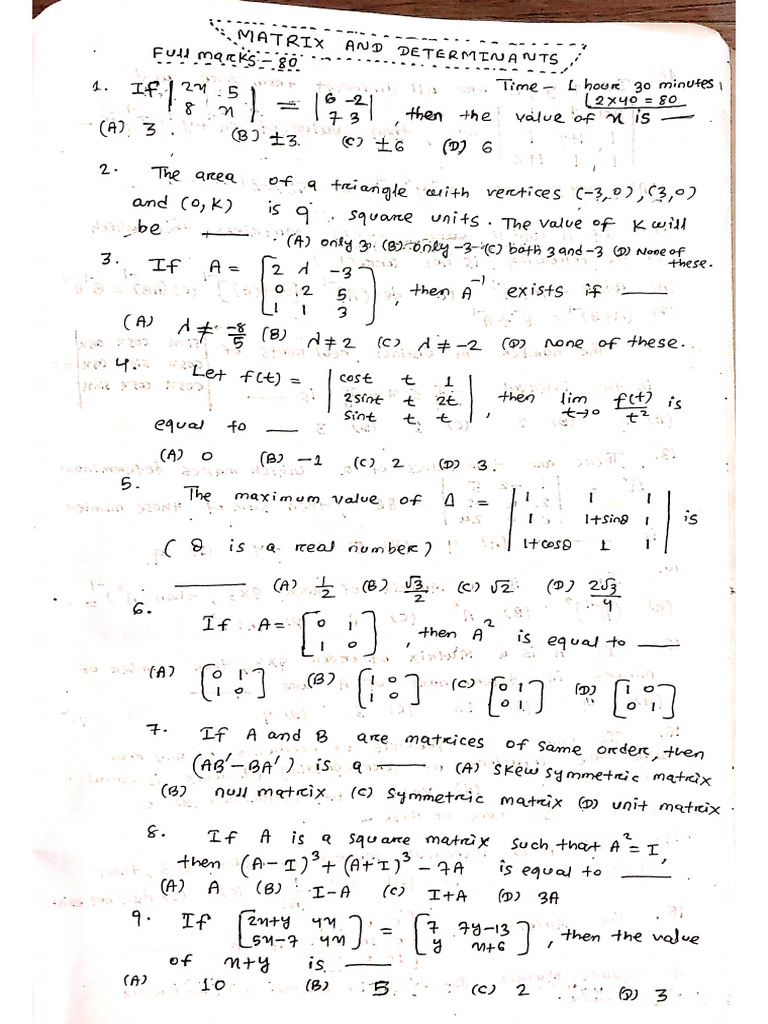 MATRIX AND DETERMINANTS
Full marks - 80
Time - 1 hour 30 minutes
2×40 = 80
1. If |2x 5; 8 x| = |6 -2; 7 3|, then the value of x is —
(A) 3 (B) ±3 (C) ±6 (D) 6
2. The area of a triangle with vertices (-3,0), (3,0)
and (0,K) is 9 square units. The value of K will
be — (A) only 3 (B) only -3 (C) both 3 and -3 (D) None of these.
3. If A = [2 λ -3; 0 2 5; 1 1 3], then A⁻¹ exists if —
(A) λ ≠ -8/5 (B) λ ≠ 2 (C) λ ≠ -2 (D) none of these.
4. Let f(t) = |cost t 1; 2sint t 2t; sint t t|, then lim t→0 f(t)/t² is
equal to —
(A) 0 (B) -1 (C) 2 (D) 3.
5. The maximum value of Δ = |1 1 1; 1 1+sinθ 1; 1+cosθ 1 1| is
(θ is a real number)
— (A) 1/2 (B) √3/2 (C) √2 (D) 2√3/4
6. If A = [0 1; 1 0], then A² is equal to —
(A) [0 1; 1 0] (B) [1 0; 1 0] (C) [0 1; 0 1] (D) [1 0; 0 1]
7. If A and B are matrices of same order, then
(AB'-BA') is a — (A) skew symmetric matrix
(B) null matrix (C) symmetric matrix (D) unit matrix
8. If A is a square matrix such that A² = I,
then (A-I)³+(A+I)³-7A is equal to —
(A) A (B) I-A (C) I+A (D) 3A
9. If [2x+y 4x; 5x-7 4x] = [7 7y-13; y x+6], then the value
of x+y is —
(A) 10 (B) 5 (C) 2 (D) 3